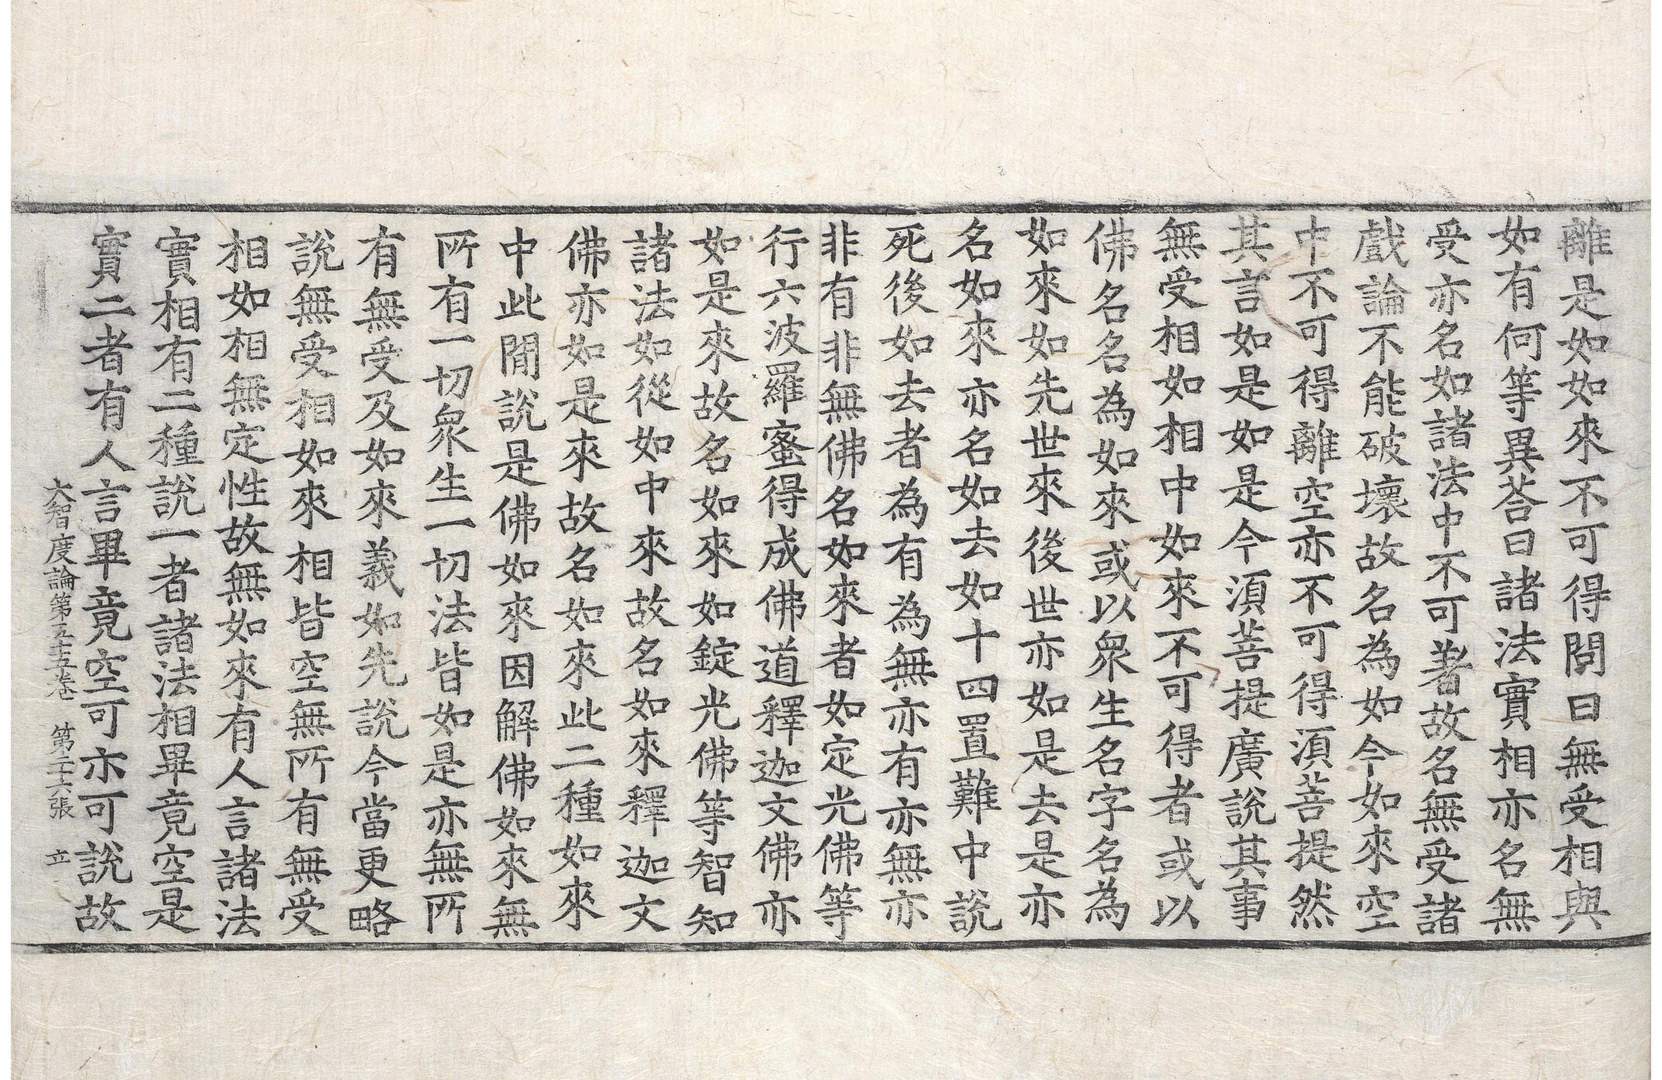 離是如如來不可得問曰無受相與
如有何等異荅曰諸法實相亦名無
受亦名如諸法中不可著故名無受諸
戲論不能破壞故名為如今如來空
中不可得離空亦不可得湏菩提然
其言如是如是今湏菩提廣說其事
無受相如相中如來不可得者或以
佛名名為如來或以衆生名字名為
如來如先世來後世亦如是去是亦
名如來亦名如去如十四置難中說
死後如去者為有為無亦有亦無亦
非有非無佛名如來者如定光佛等
行六波羅蜜得成佛道釋迦文佛亦
如是來故名如來如錠光佛等智知
諸法如從如中來故名如來釋迦文
佛亦如是來故名如來此二種如來
中此間說是佛如來因解佛如來無
所有一切衆生一切法皆如是亦無所
有無受及如來義如先說今當更略
說無受相如來相皆空無所有無受
相如相無定性故無如來有人言諸法
實相有二種說一者諸法相畢竟空是
實二者有人言畢竟空可亦可說故
大智度論第五十五卷 第二十六張 立